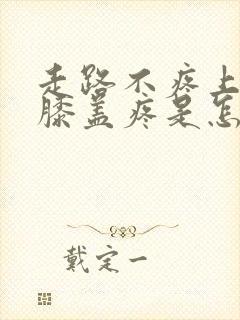 走路不疼上
膝盖疼是怎
戴定一